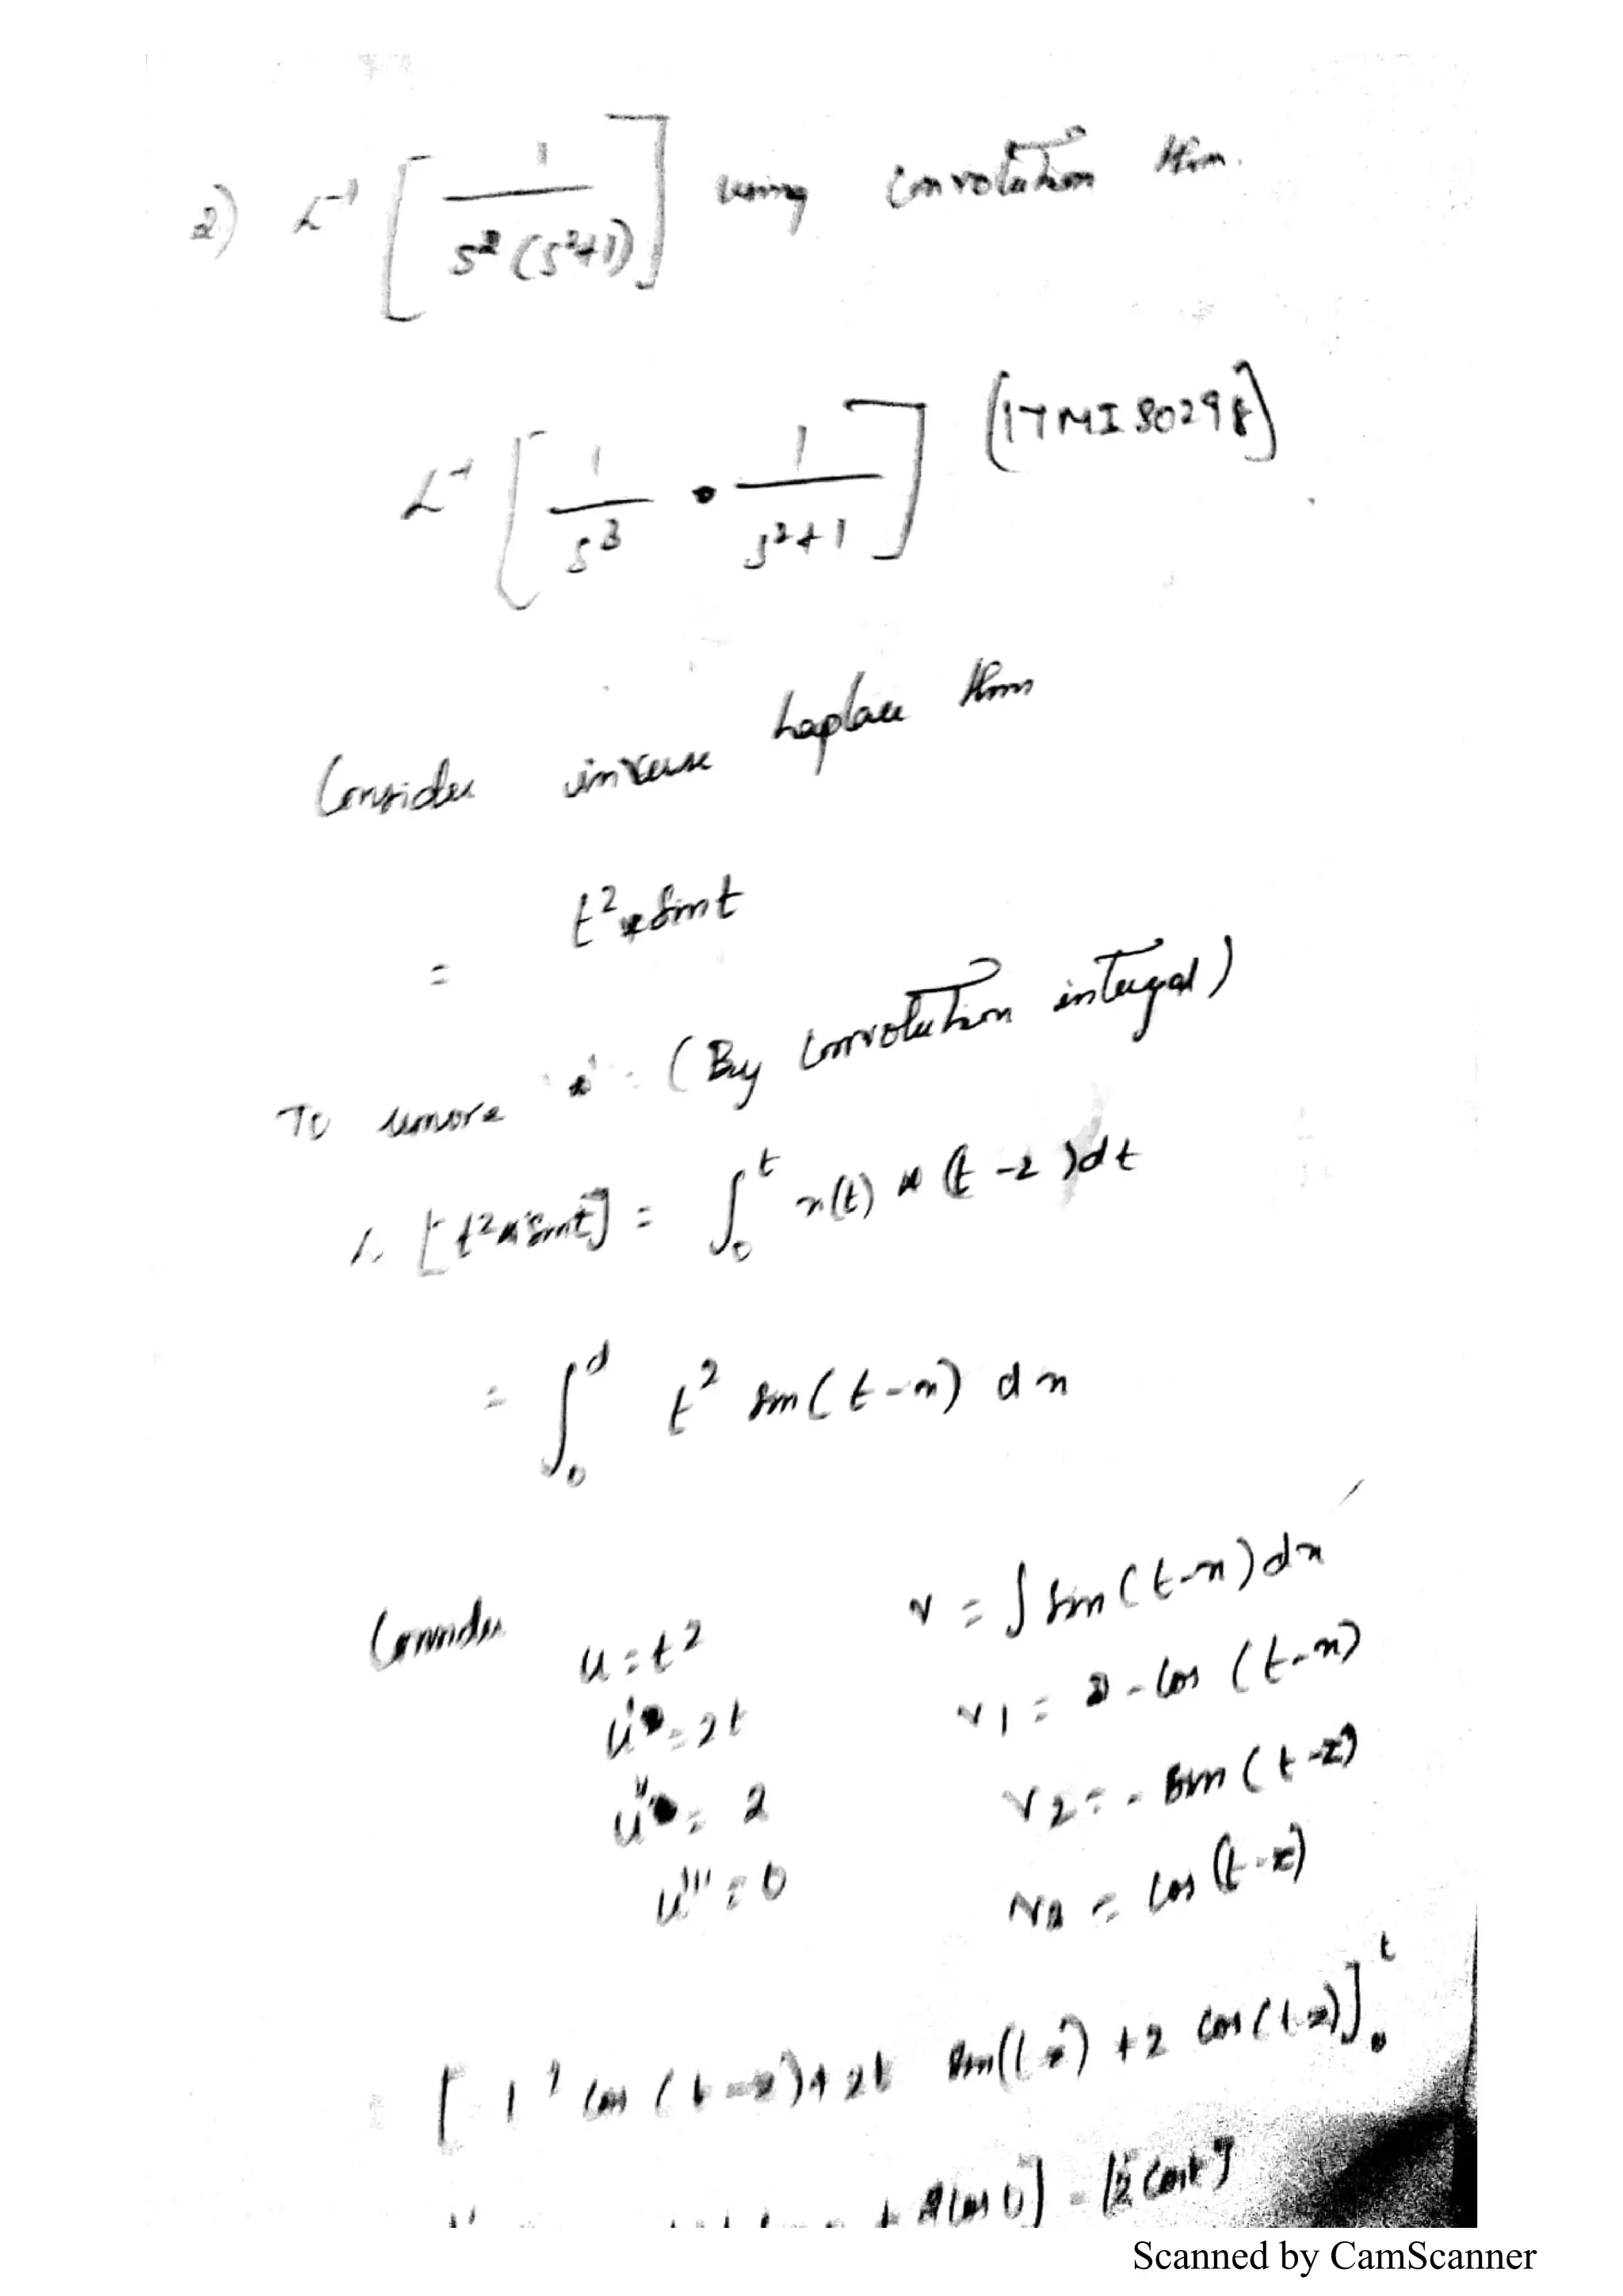 2) L⁻¹ [ 1 / s² (s²+1) ] using convolution thm.
(17MIS0298)
L⁻¹ [ 1/s³ • 1/s²+1 ]
Consider inverse Laplace thm
= t² * sint
To remove * (By convolution integral)
L [t² * sint] = ∫₀ᵗ x(t) * (t-z)dt
= ∫₀ᵈ t² sin(t-x) dx
Consider u = t² v = ∫ sin(t-x)dx
u' = 2t v1 = - cos (t-x)
u'' = 2 v2 = - sin (t-z)
u''' = 0 v3 = cos (t-z)
[ t² cos (t-z) + 2t sin(t-z) + 2 cos(t-z)]₀ᵗ
+ 2 cos 0] - [2 cost]
Scanned by CamScanner